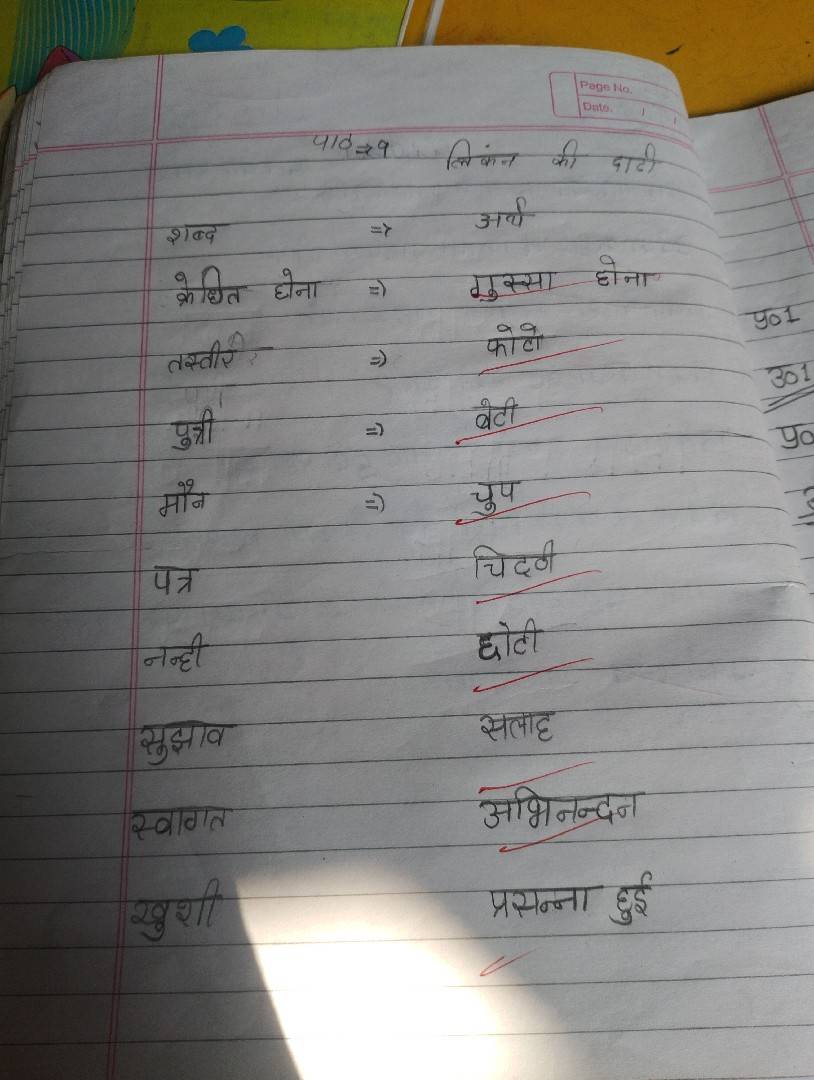 Page No.
Date. / /
पाठ ⇒ १ लिकंन की दाटी
शब्द ⇒ अर्थ
क्रेधित होना ⇒ गुस्सा होना
तस्वीर ⇒ फोटो
पुत्री ⇒ बेटी
मौन ⇒ चुप
पत्र चिटठी
नन्ही छोटी
सुझाव सलाह
स्वागत अभिनन्दन
खुशी प्रसन्ना हुई
प्र01
उ01
प्र0